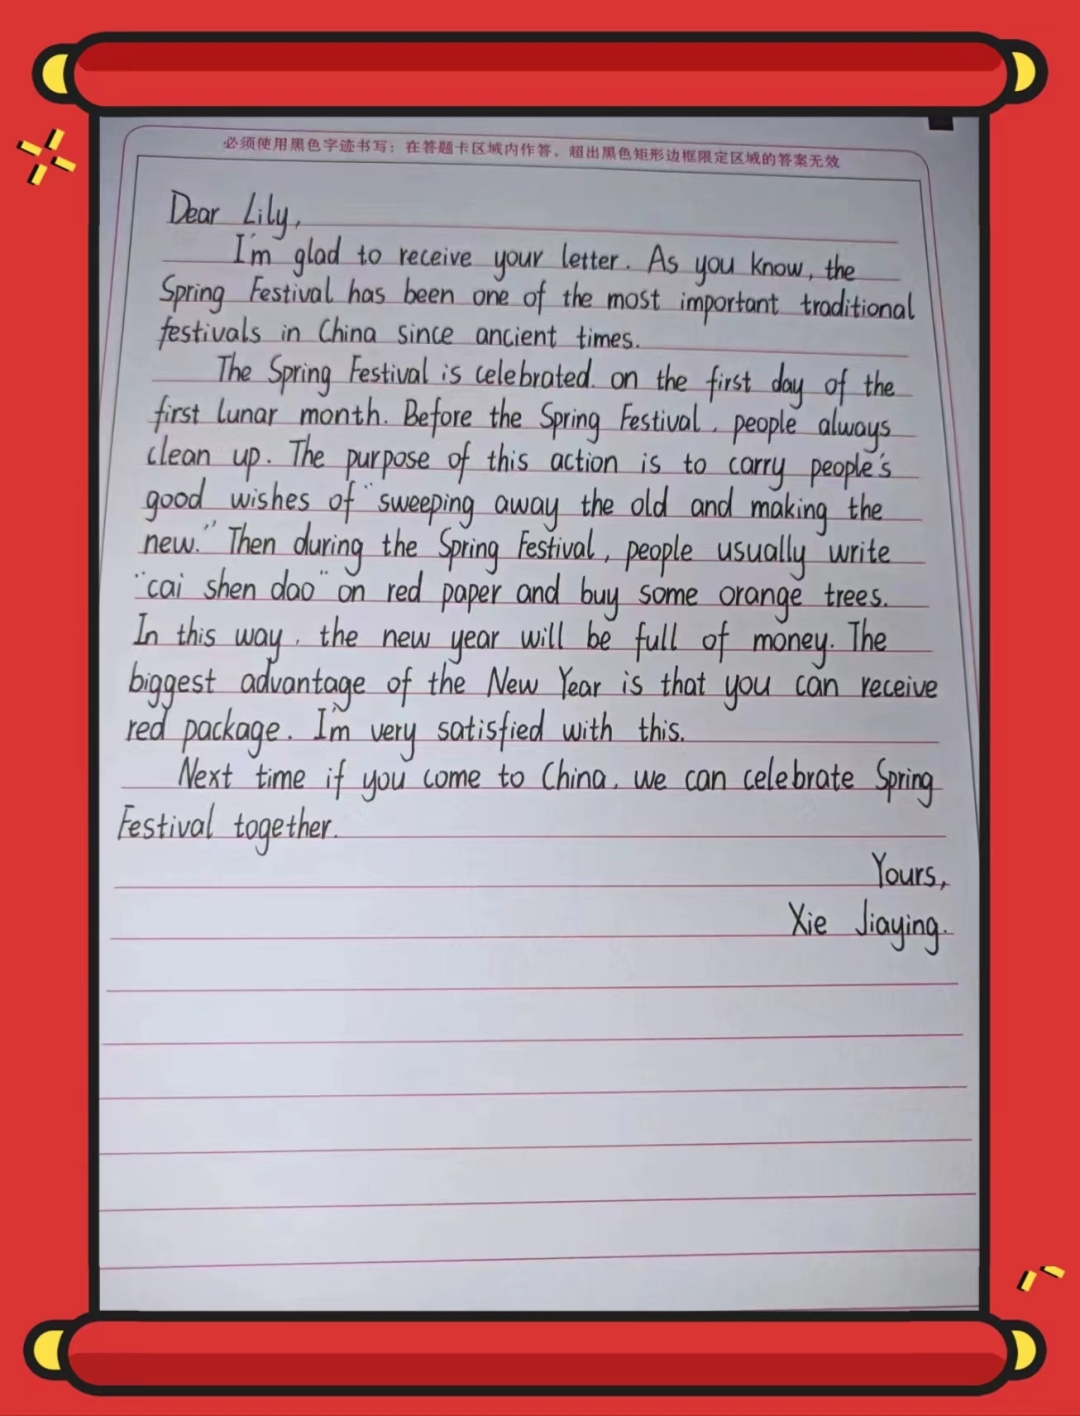 必须使用黑色字迹书写：在答题卡区域内作答，超出黑色矩形边框限定区域的答案无效
Dear Lily,
I'm glad to receive your letter. As you know, the
Spring Festival has been one of the most important traditional
festivals in China since ancient times.
The Spring Festival is celebrated. on the first day of the
first lunar month. Before the Spring Festival, people always
clean up. The purpose of this action is to carry people's
good wishes of "sweeping away the old and making the
new." Then during the Spring Festival, people usually write
"cai shen dao" on red paper and buy some orange trees.
In this way, the new year will be full of money. The
biggest advantage of the New Year is that you can receive
red package. I'm very satisfied with this.
Next time if you come to China, we can celebrate Spring
Festival together.
Yours,
Xie Jiaying.